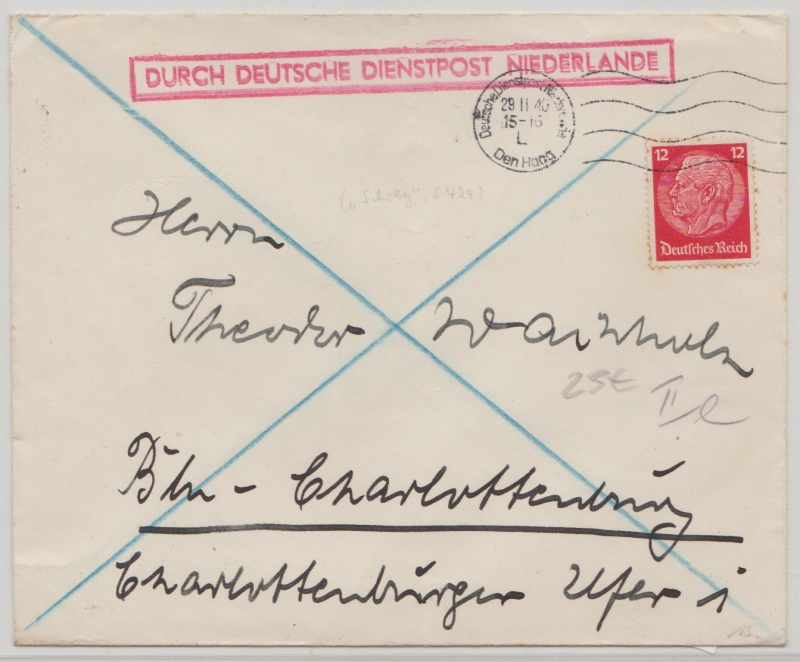 DURCH DEUTSCHE DIENSTPOST NIEDERLANDE
Deutsche Dienstpost Niederlande
29 11 40
15-16
L
Den Haag
12 12
Deutsches Reich
Herrn
Theodor
25€
II
Bln - Charlottenburg
Charlottenburger Ufer 1